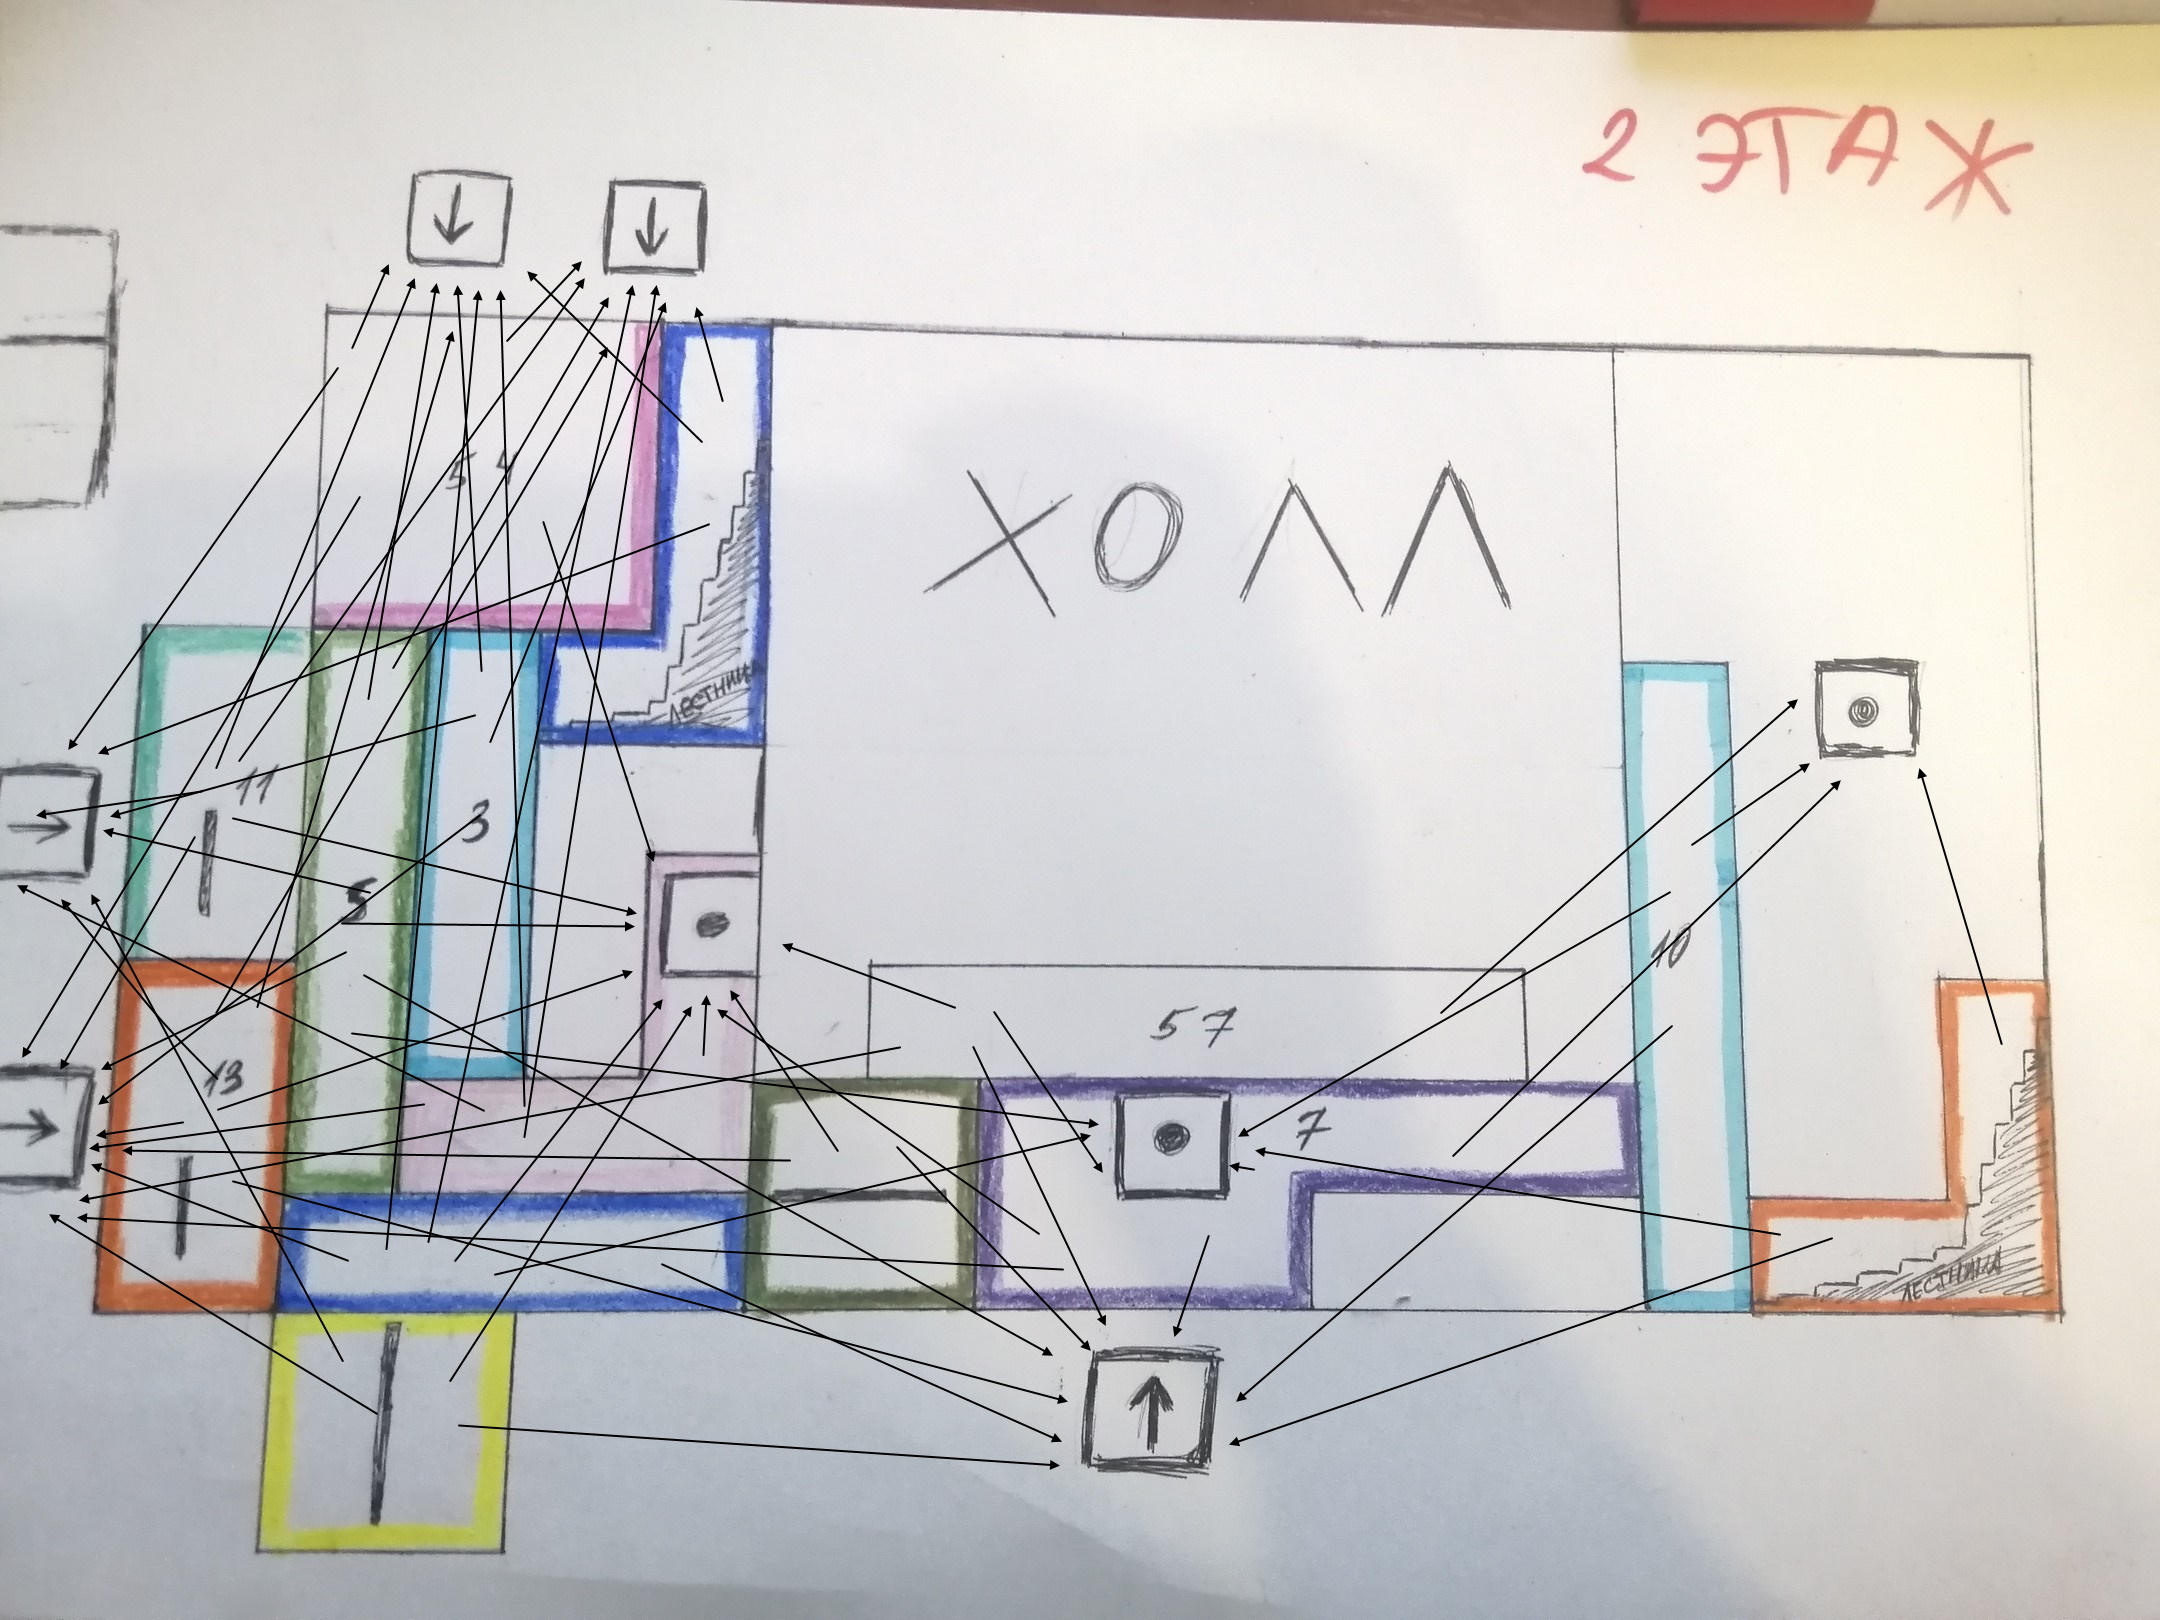 2 ЭТАЖ
54
ХОЛЛ
ЛЕСТНИЦА
11
3
5
10
57
13
7
ЛЕСТНИЦА